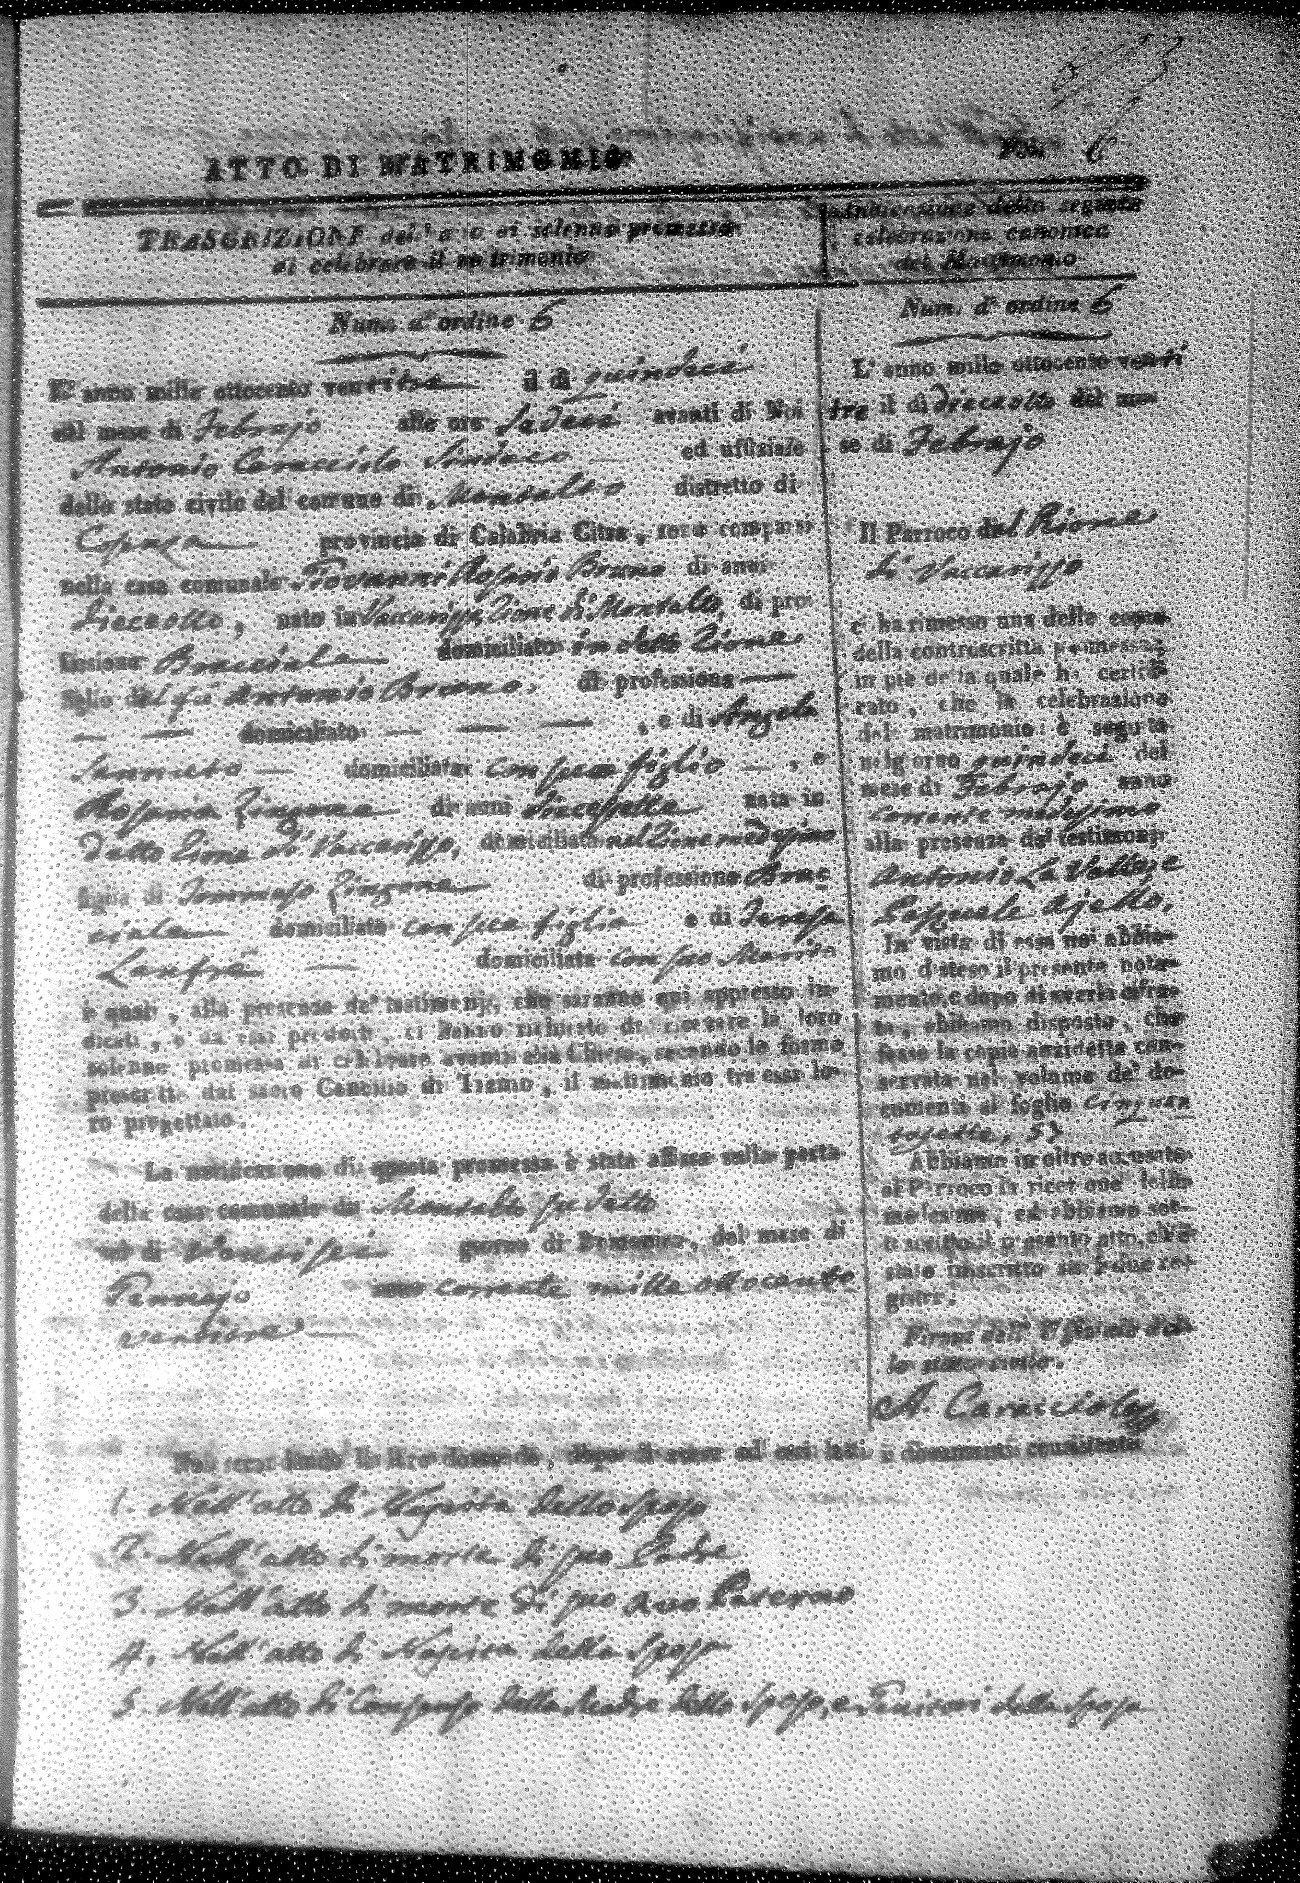 Fol. 6
ATTO DI MATRIMONIO
TRASCRIZIONE dell' atto di solenne promessa
di celebrare il matrimonio
Num. d' ordine 6
L' anno mille ottocento ventitre il dì quindeci
del mese di Febrajo alle ore sedeci avanti di Noi
Antonio Caracciolo Sindaco ed uffiziale
dello stato civile del comune di Montalto distretto di
Cosenza provincia di Calabria Citra, sono comparsi
nella casa comunale Giovanni Rosario Bruno di anni
dieceotto, nato in Vaccarizzo Rione di Montalto, di pro-
fessione Bracciale domiciliato in detto Rione
figlio del fu Antonio Bruno, di professione —
— — domiciliato — — — , e di Angela
domiciliata con suo figlio — , e
Rosaria Zingone di anni diecesette nata in
detto Rione di Vaccarizzo, domiciliata nel Rione medesimo
figlia di Tommaso Zingone di professione Brac-
ciale domiciliato con sua figlia e di Teresa
Lanfrè — domiciliata con suo Marito
i quali, alla presenza de' testimonj, che saranno qui appresso in-
dicati, e da essi prodotti, ci hanno richiesto di ricevere la loro
solenne promessa di celebrare avanti alla Chiesa, secondo le forme
prescritte dal sacro Concilio di Trento, il matrimonio tra essi lo-
ro progettato.
La notificazione di questa promessa è stata affissa sulla porta
della casa comunale di Montalto sudetto
nel dì ventisei giorno di Domenica, del mese di
Gennajo anno corrente mille ottocento
ventitre
Indicazione della seguita
celebrazione canonica
del Matrimonio
Num. d' ordine 6
L' anno mille ottocento venti
tre il dì dieceotto del me-
se di Febrajo
Il Parroco del Rione
di Vaccarizzo
ci ha rimesso una delle copie
della controscritta promessa;
in piè della quale ha certifi-
cato, che la celebrazione
del matrimonio è seguita
nel giorno quindeci del
mese di Febrajo anno
corrente medesimo
alla presenza de' testimonj
Antonio La Valle e
Pasquale Ajello.
In vista di essa noi abbia-
mo disteso il presente nota-
mento, e dopo di averla cifra-
ta, abbiamo disposto, che
fosse la copia anzidetta con-
servata nel volume de' do-
cumenti al foglio cinquan
tasette, 57
Abbiamo in oltre accusato
al Parroco la ricezione della
medesima, ed abbiamo sot-
toscritto il presente atto, ch'è
stato inscritto su i due re-
gistri.
Firma dell' Uffiziale del-
lo stato civile.
A. Caracciolo
Noi secondando la loro domanda, dopo di aver ad essi letti i documenti consistenti
1. Nell'atto di Nascita dello sposo
2. Nell'atto di morte di suo Padre
3. Nell'atto di morte di suo avo Paterno
4. Nell'atto di Nascita della sposa
5. Nell'atto di Consenso della Madre dello sposo, e Genitori della sposa